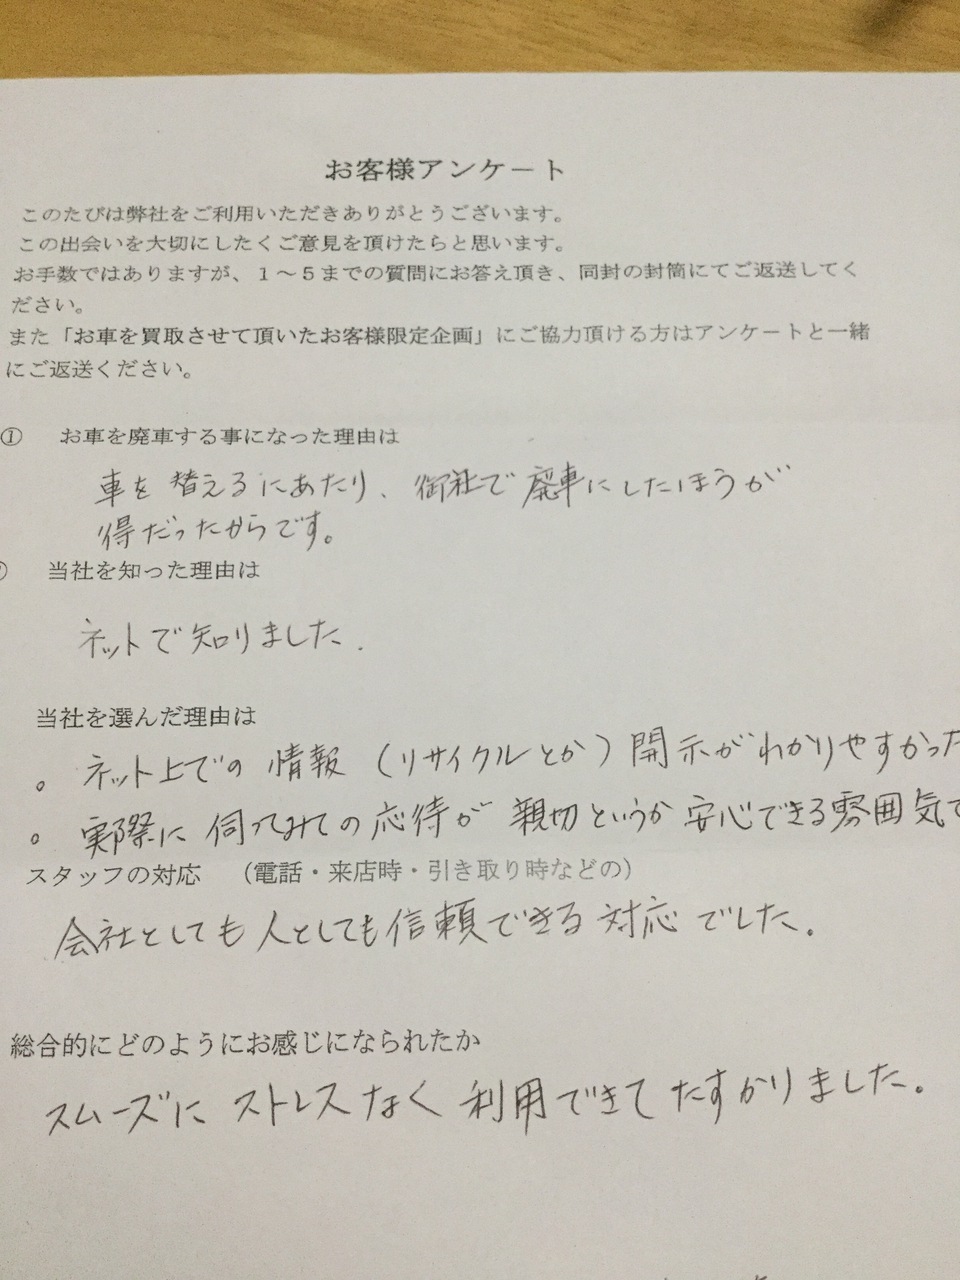 お客様アンケート
このたびは弊社をご利用いただきありがとうございます。
この出会いを大切にしたくご意見を頂けたらと思います。
お手数ではありますが、１～５までの質問にお答え頂き、同封の封筒にてご返送してく
ださい。
また「お車を買取させて頂いたお客様限定企画」にご協力頂ける方はアンケートと一緒
にご返送ください。
① お車を廃車する事になった理由は
車を替えるにあたり、御社で廃車にしたほうが
得だったからです。
当社を知った理由は
ネットで知りました.
当社を選んだ理由は
。ネット上での情報（リサイクルとか）開示がわかりやすかった
。実際に伺ってみての応待が親切というか安心できる雰囲気で
スタッフの対応 （電話・来店時・引き取り時などの）
会社としても人としても信頼できる対応でした.
総合的にどのようにお感じになられたか
スムーズにストレスなく利用できてたすかりました。